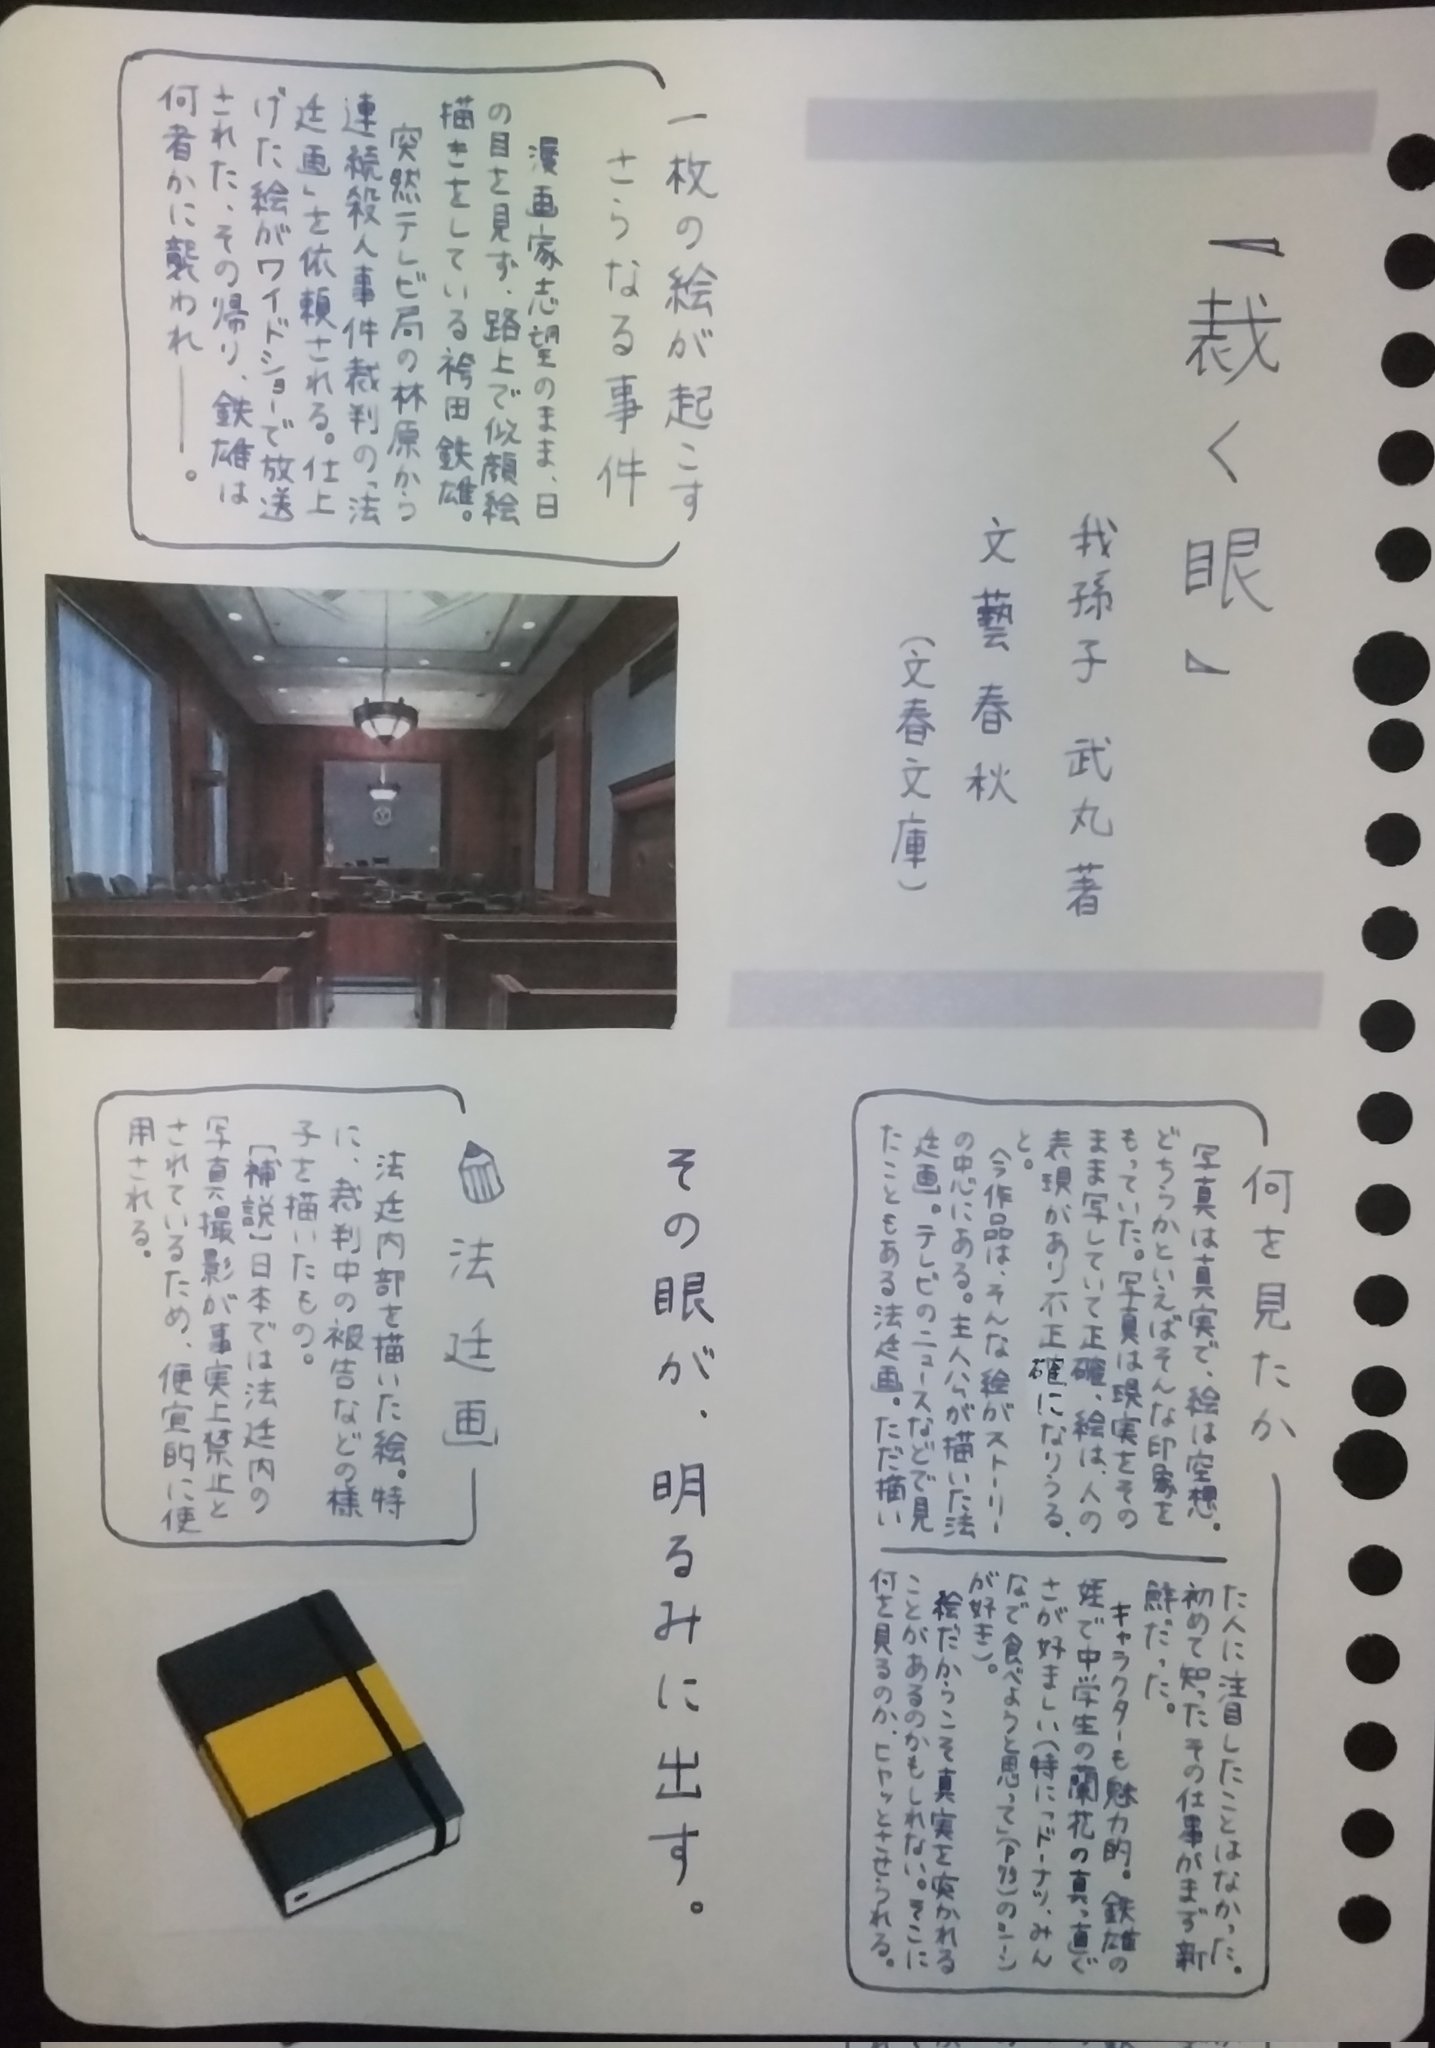 『裁く眼』
我孫子 武丸 著
文藝春秋
（文春文庫）
一枚の絵が起こす
さらなる事件
漫画家志望のまま、日
の目を見ず、路上で似顔絵
描きをしている袴田鉄雄。
突然テレビ局の林原から
連続殺人事件裁判の「法
廷画」を依頼される。仕上
げた絵がワイドショーで放送
された、その帰り、鉄雄は
何者かに襲われ――。
何を見たか
写真は真実で、絵は空想。
どちらかといえばそんな印象を
もっていた。写真は現実をその
まま写していて正確、絵は、人の
表現があり不正確になりうる、
と。
今作品は、そんな絵がストーリー
の中心にある。主人公が描いた法
廷画。テレビのニュースなどで見
たこともある法廷画。ただ描い
た人に注目したことはなかった。
初めて知ったその仕事がまず新
鮮だった。
キャラクターも魅力的。鉄雄の
姪で中学生の蘭花の真っ直ぐ
さが好ましい（特に「ドーナツ、みん
なで食べようと思って」（P73）のシーン
が好き）。
絵だからこそ真実を突かれる
ことがあるのかもしれない。そこに
何を見るのか、ヒヤッとさせられる。
その眼が、明るみに出す。
法廷画
法廷内部を描いた絵。特
に、裁判中の被告などの様
子を描いたもの。
［補説］日本では法廷内の
写真撮影が事実上禁止と
されているため、便宜的に使
用される。